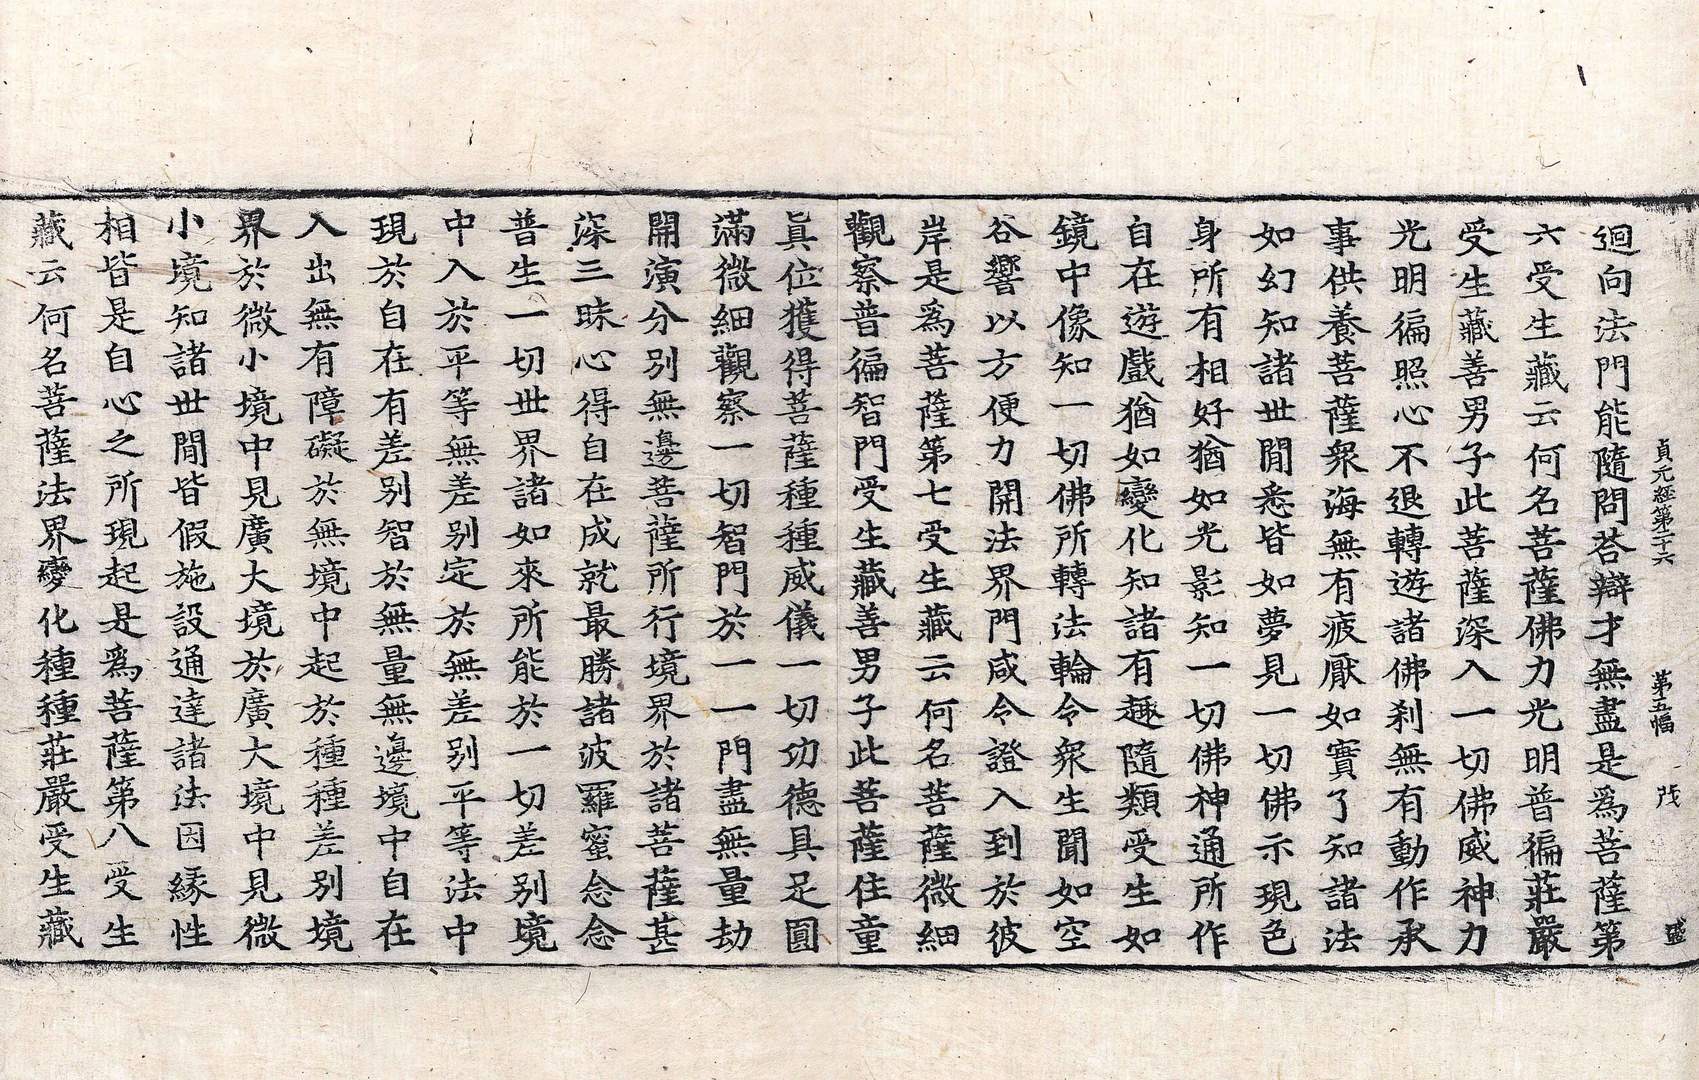 貞元経第二十六 第五幅 盛
迴向法門能隨問荅辯才無盡是爲菩薩第
六受生藏云何名菩薩佛力光明普徧莊嚴
受生藏善男子此菩薩深入一切佛威神力
光明徧照心不退轉遊諸佛刹無有動作承
事供養菩薩衆海無有疲厭如實了知諸法
如幻知諸世間悉皆如夢見一切佛示現色
身所有相好猶如光影知一切佛神通所作
自在遊戲猶如變化知諸有趣隨類受生如
鏡中像知一切佛所轉法輪令衆生聞如空
谷響以方便力開法界門咸令證入到於彼
岸是爲菩薩第七受生藏云何名菩薩微細
觀察普徧智門受生藏善男子此菩薩住童
眞位獲得菩薩種種威儀一切功德具足圓
滿微細觀察一切智門於一一門盡無量劫
開演分別無邊菩薩所行境界於諸菩薩甚
深三昧心得自在成就最勝諸波羅蜜念念
普生一切世界諸如來所能於一切差別境
中入於平等無差別定於無差別平等法中
現於自在有差別智於無量無邊境中自在
入出無有障礙於無境中起於種種差別境
界於微小境中見廣大境於廣大境中見微
小境知諸世間皆假施設通達諸法因緣性
相皆是自心之所現起是爲菩薩第八受生
藏云何名菩薩法界變化種種莊嚴受生藏